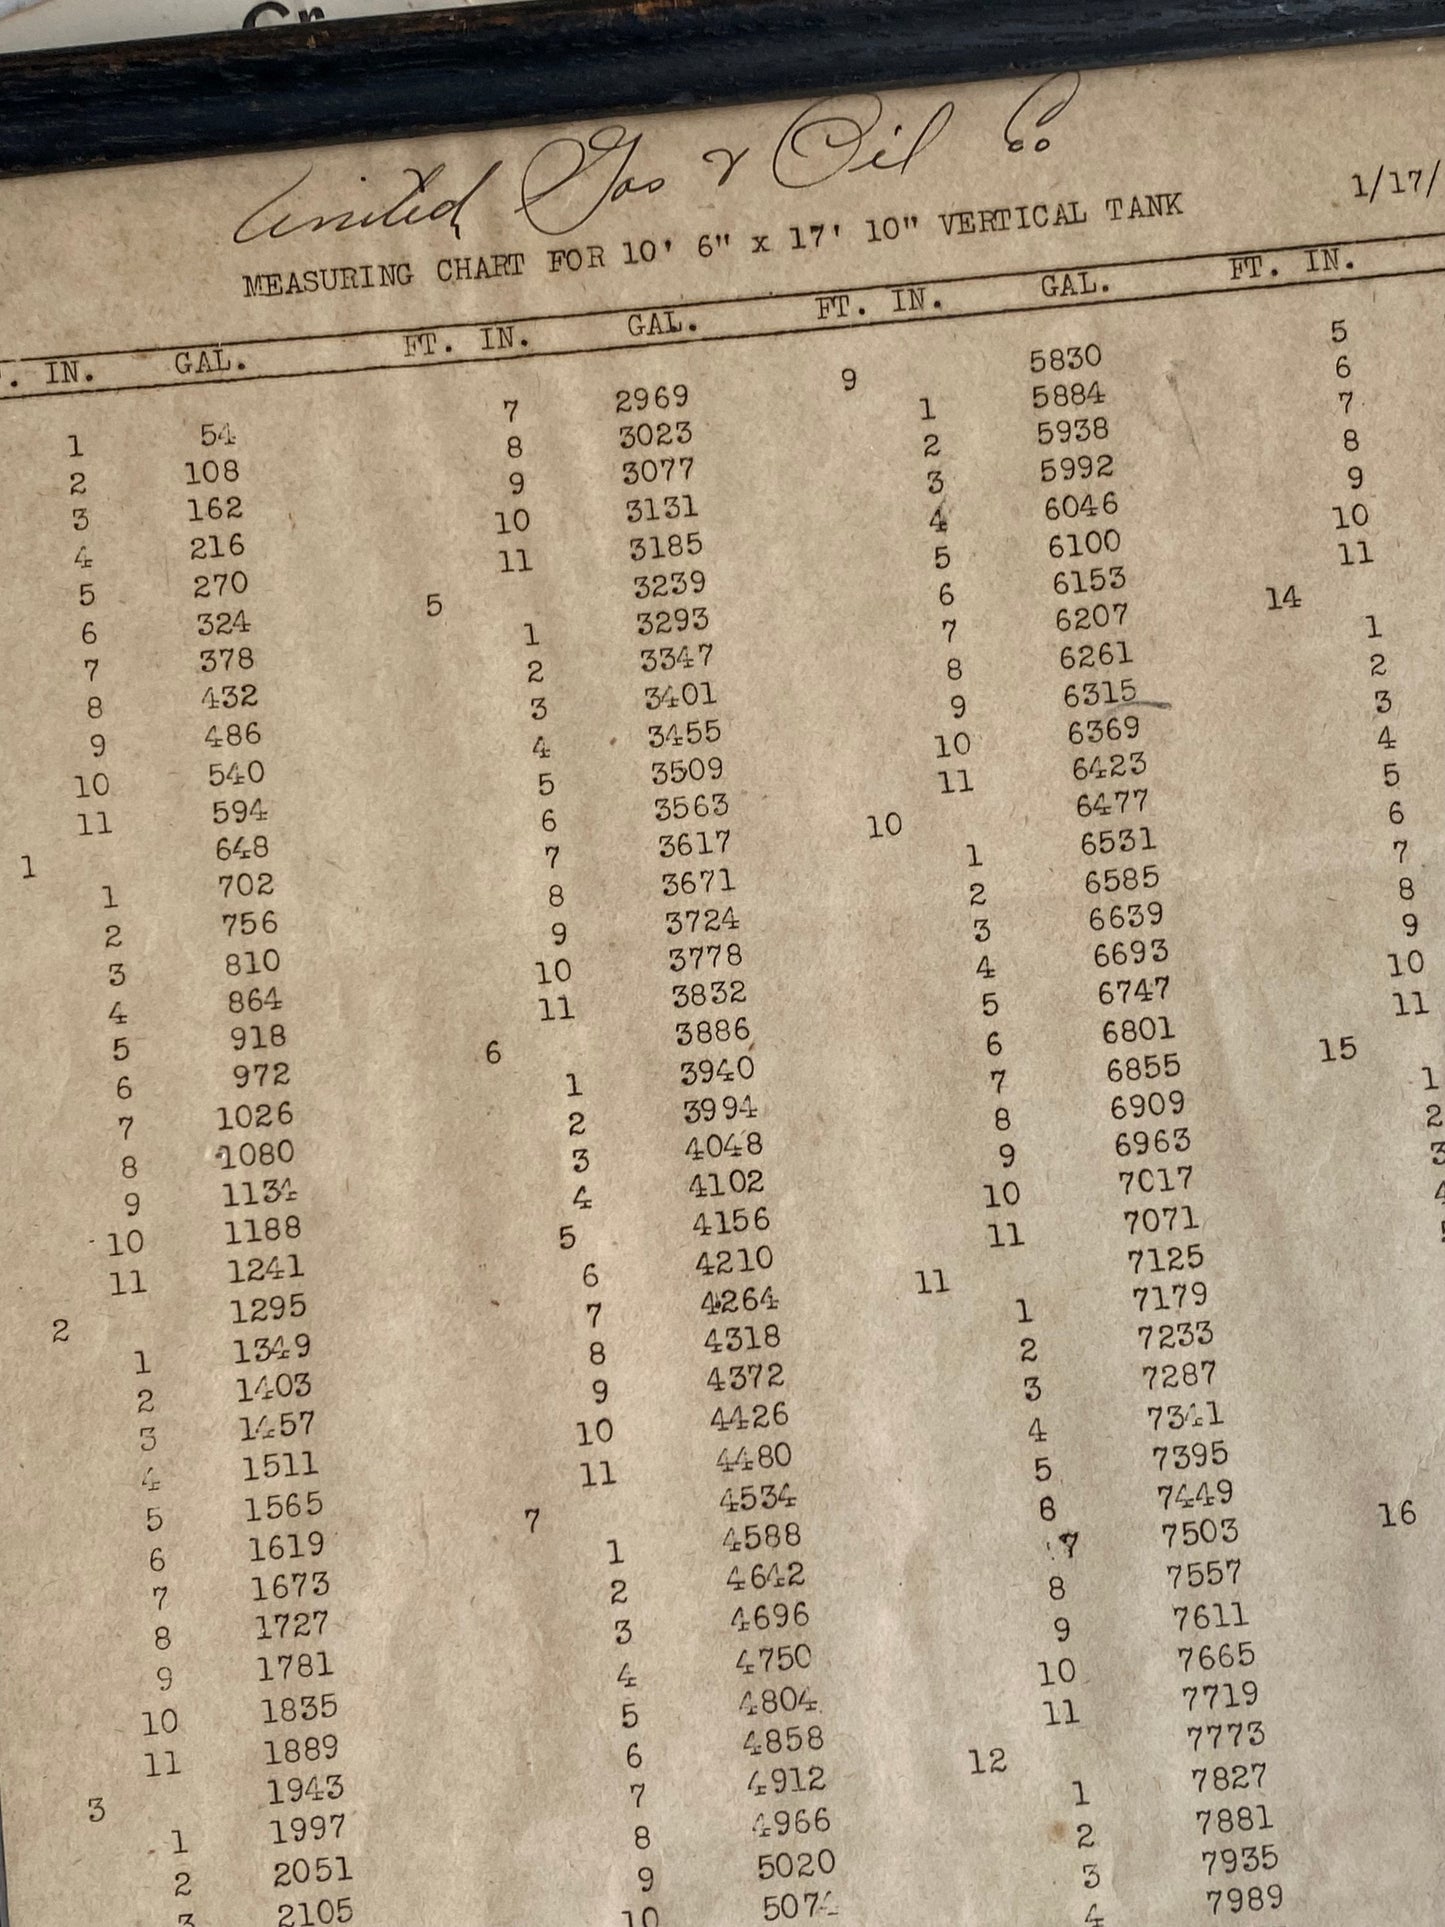 Gr
United Gas & Oil Co
1/17/
MEASURING CHART FOR 10' 6" x 17' 10" VERTICAL TANK
. IN. GAL. FT. IN. GAL. FT. IN. GAL. FT. IN.
1 54 7 2969 9 5830 5
2 108 8 3023 1 5884 6
3 162 9 3077 2 5938 7
4 216 10 3131 3 5992 8
5 270 11 3185 4 6046 9
6 324 5 3239 5 6100 10
7 378 1 3293 6 6153 11
8 432 2 3347 7 6207 14
9 486 3 3401 8 6261 1
10 540 4 3455 9 6315 2
11 594 5 3509 10 6369 3
1 648 6 3563 11 6423 4
1 702 7 3617 10 6477 5
2 756 8 3671 1 6531 6
3 810 9 3724 2 6585 7
4 864 10 3778 3 6639 8
5 918 11 3832 4 6693 9
6 972 6 3886 5 6747 10
7 1026 1 3940 6 6801 11
8 1080 2 3994 7 6855 15
9 1134 3 4048 8 6909 1
10 1188 4 4102 9 6963 2
11 1241 5 4156 10 7017 3
2 1295 6 4210 11 7071 4
1 1349 7 4264 11 7125 5
2 1403 8 4318 1 7179
3 1457 9 4372 2 7233
4 1511 10 4426 3 7287
5 1565 11 4480 4 7341
6 1619 7 4534 5 7395
7 1673 1 4588 6 7449
8 1727 2 4642 7 7503 16
9 1781 3 4696 8 7557
10 1835 4 4750 9 7611
11 1889 5 4804 10 7665
3 1943 6 4858 11 7719
1 1997 7 4912 12 7773
2 2051 8 4966 1 7827
3 2105 9 5020 2 7881
10 5074 3 7935
4 7989